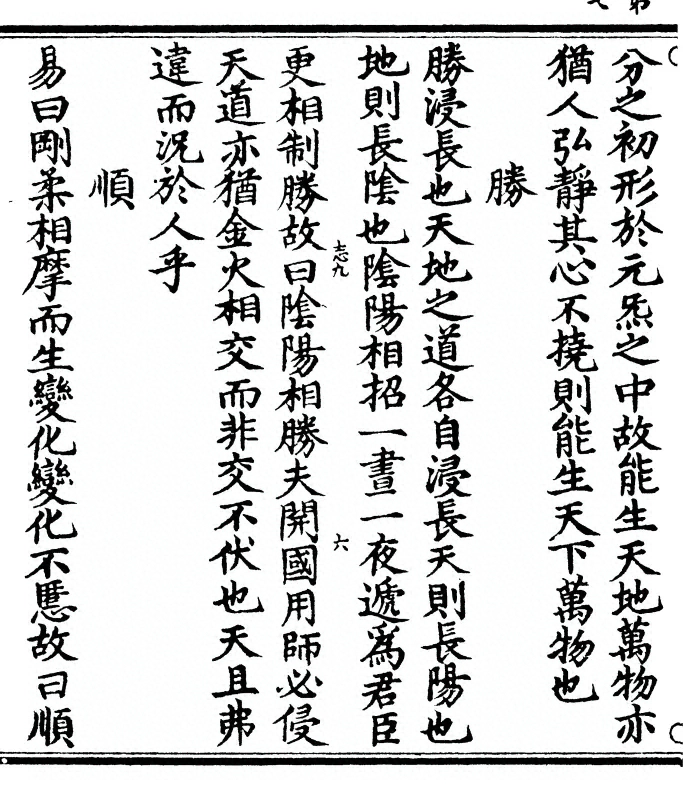 分之初形於元炁之中故能生天地萬物亦
猶人弘靜其心不撓則能生天下萬物也
勝
勝浸長也天地之道各自浸長天則長陽也
地則長陰也陰陽相招一晝一夜遞爲君臣
志九
六
更相制勝故曰陰陽相勝夫開國用師必侵
天道亦猶金火相交而非交不伏也天且弗
違而況於人乎
順
易曰剛柔相摩而生變化變化不慝故曰順